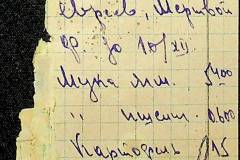 евреев, Меровой
др. до 10/XII.
Мука мм. 5400
" пшен. 0600
Картофель /15